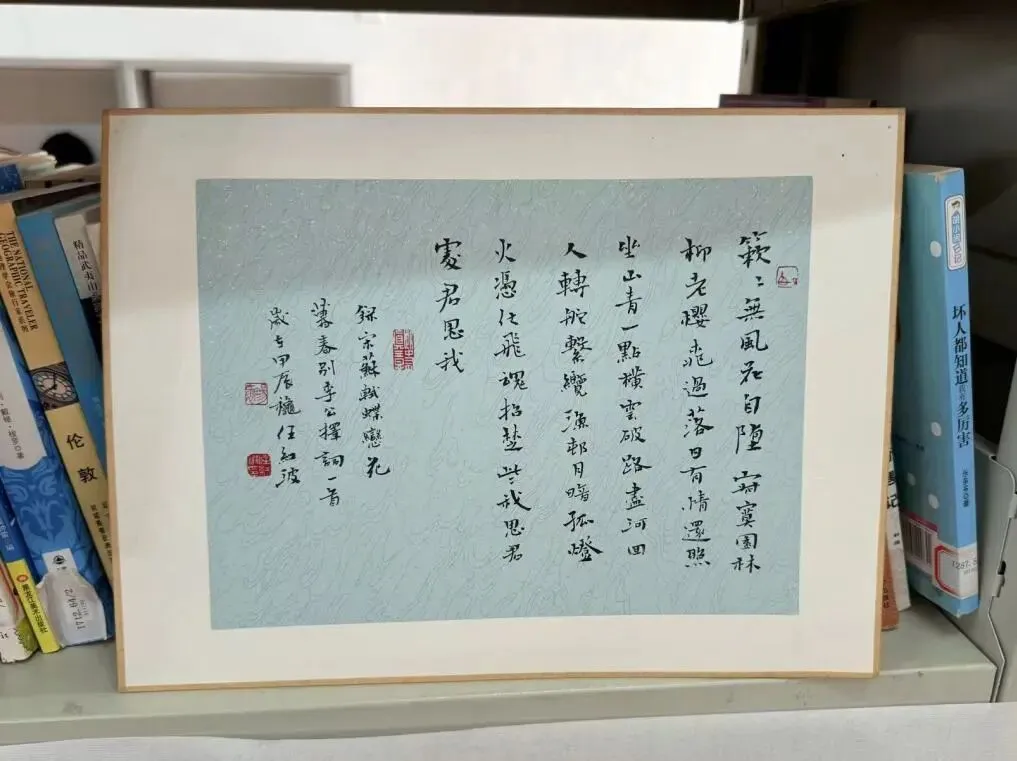 簌〻無風花自墮寂寞園林
柳老櫻桃過落日有情還照
坐山青一點橫雲破路盡河回
人轉舵繫纜漁邨月暗孤燈
火憑仗飛魂招楚些我思君
處君思我
錄宋蘇軾蝶戀花
暮春別李公擇詞一首
歲在甲辰穐任紅波
THE NATIONAL
GEOGRAPHIC TRAVELER
伦敦
精品武夷山
黑龙江美术出版社
1712.64/2
坏人都知道我有多厉害